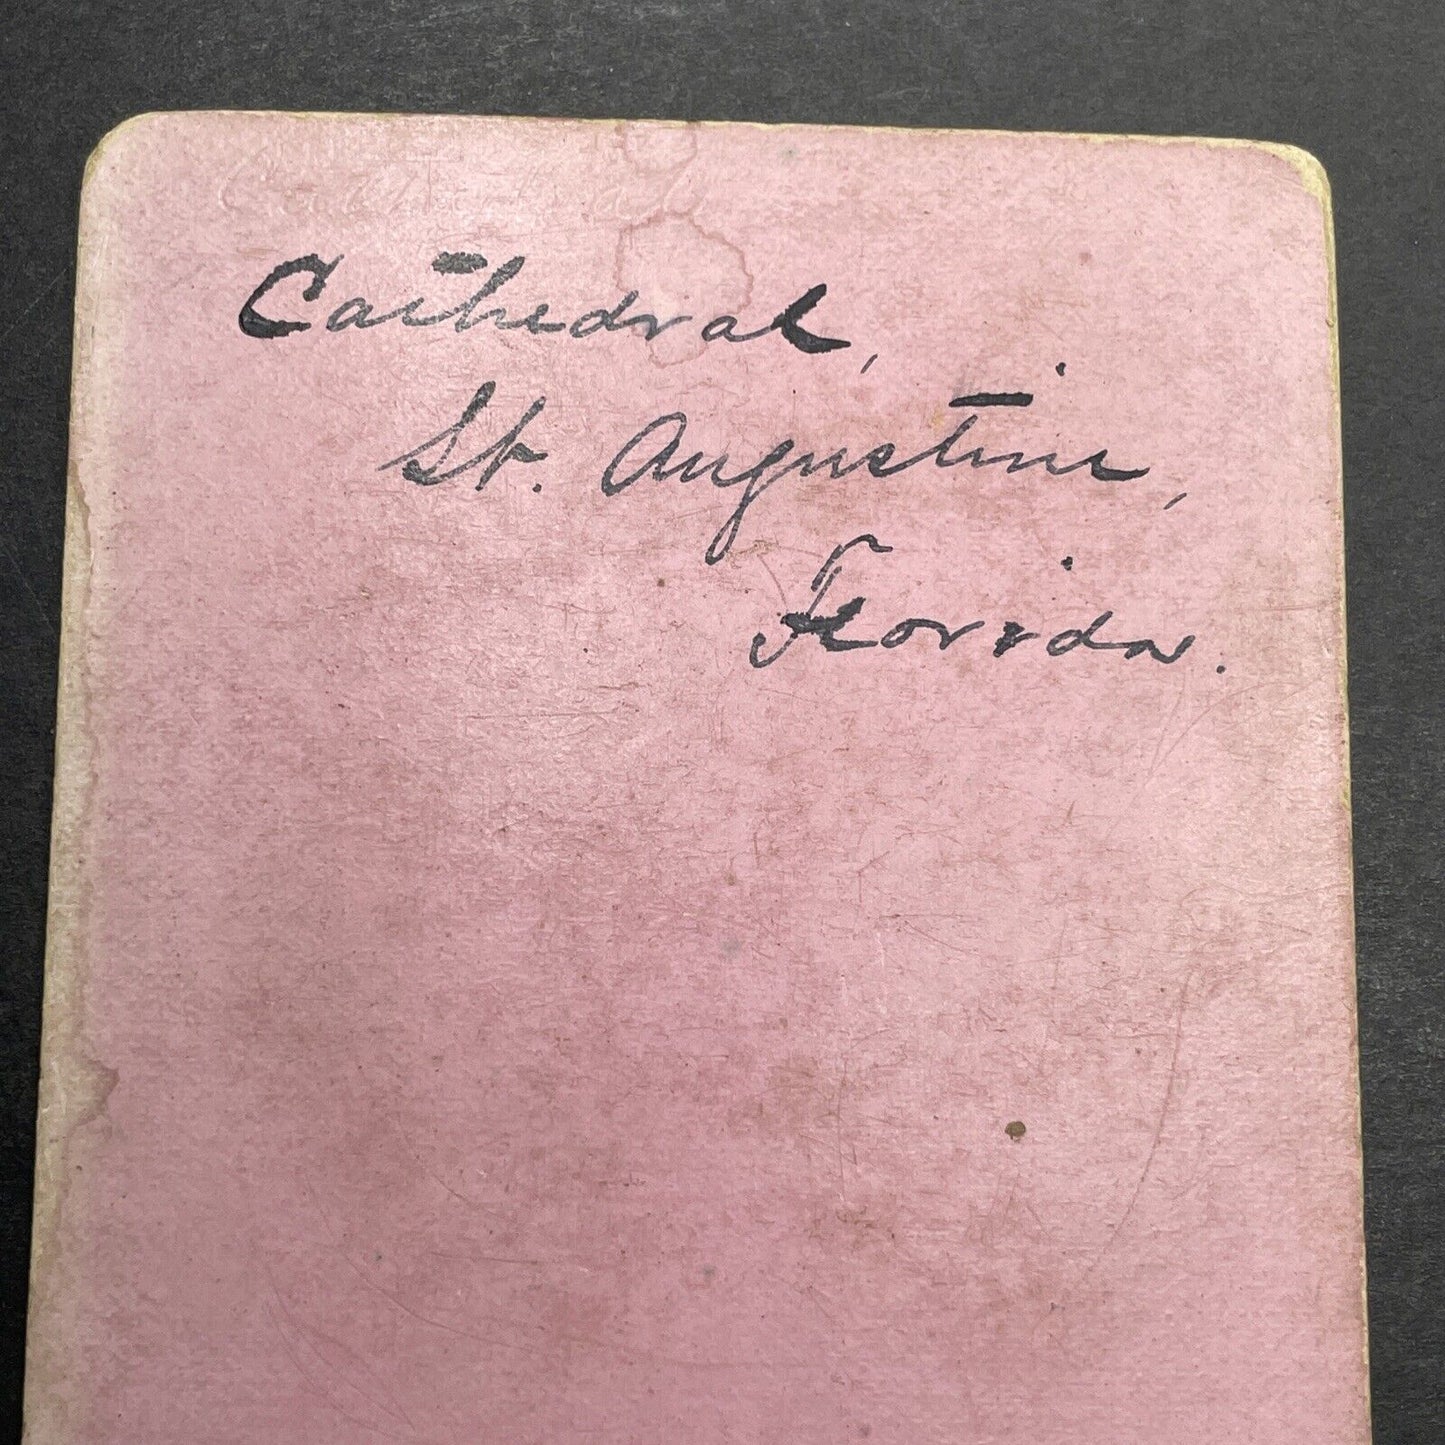 Cathedral
Cathedral,
St. Augustine,
Florida.